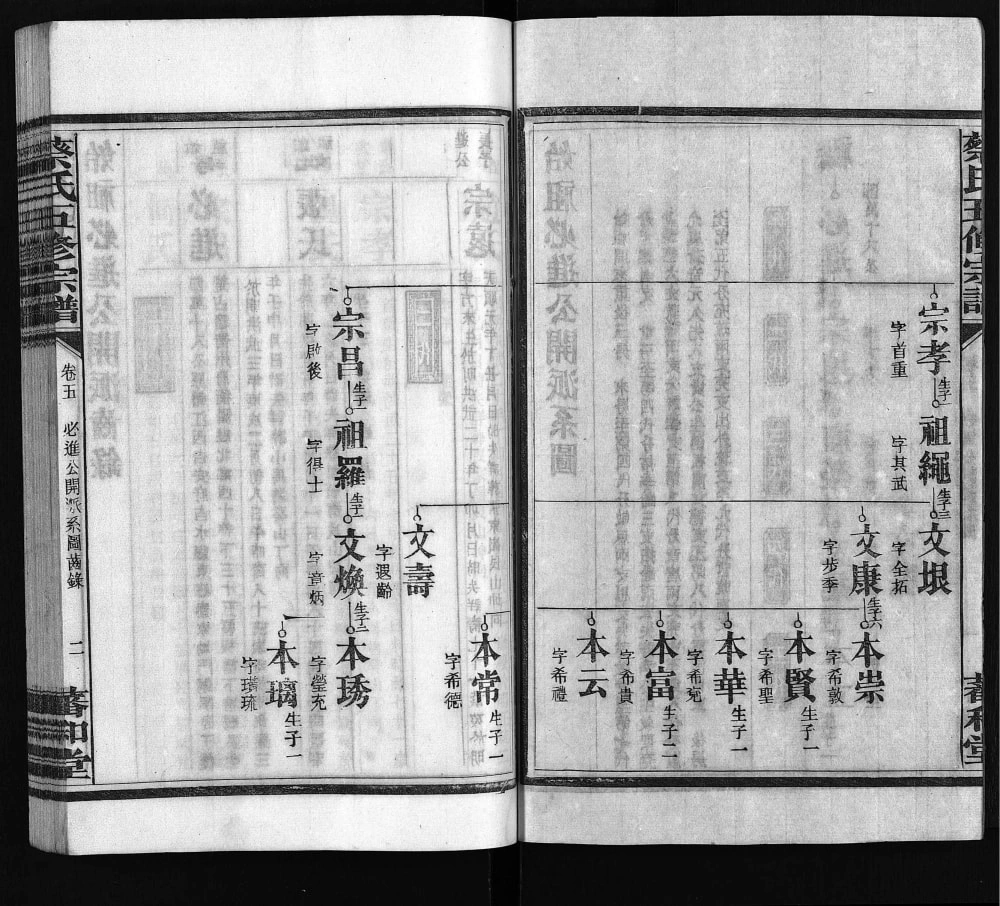 蔡氏五修宗譜
蓄和堂
宗孝
字首重
生子一
祖繩
字其武
生子三
文垠
字全拓
文康
字步季
生子六
本崇
字希敦
本賢
生子一
字希聖
本華
生子一
字希堯
本富
生子二
字希貴
本云
字希禮
本常
生子一
字希德
文壽
字遐齡
宗昌
字啟後
生子一
祖羅
字得士
生子二
文煥
字章炳
生子二
本琇
字瑩充
本璃
生子一
字璸琉
蔡氏五修宗譜
卷五
必進公開派系圖齒錄
二
蓄和堂